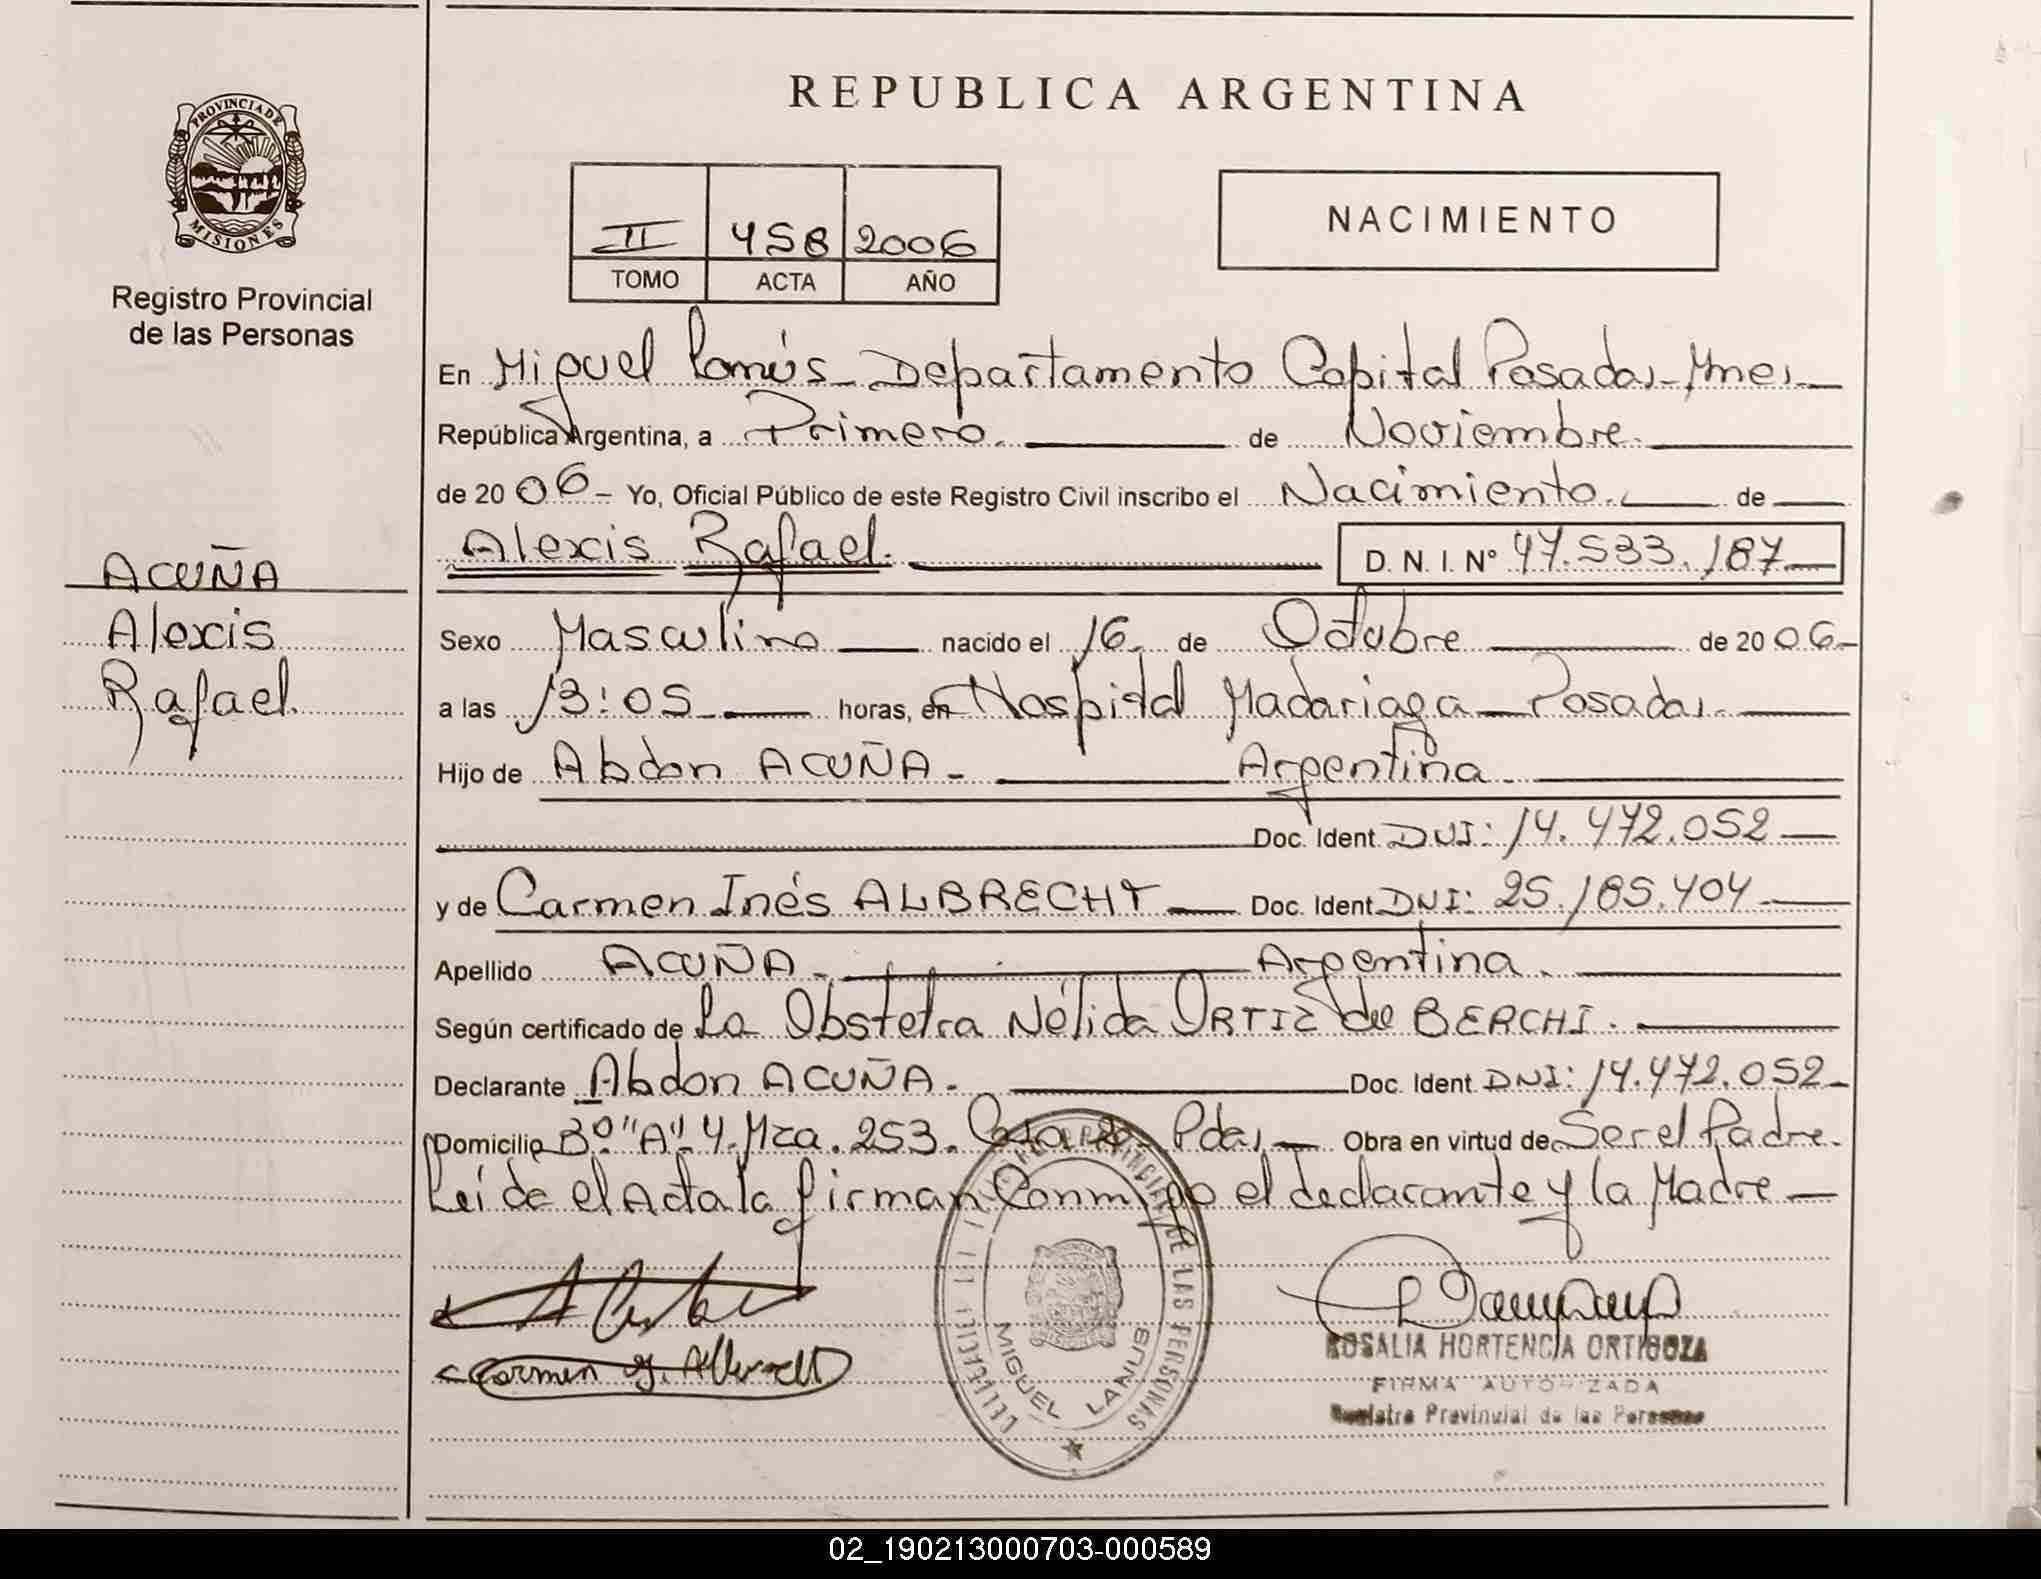 PROVINCIA DE
MISIONES
Registro Provincial
de las Personas
ACUÑA
Alexis
Rafael.
REPUBLICA ARGENTINA
II 458 2006
TOMO ACTA AÑO
NACIMIENTO
En Miguel Lanús - Departamento Capital Posadas - Mnes -
República Argentina, a Primero. de Noviembre.
de 20 06 - Yo, Oficial Público de este Registro Civil inscribo el Nacimiento. de
Alexis Rafael. D. N. I. Nº 47.533.187
Sexo Masculino nacido el 16 de Octubre de 20 06 -
a las 13:05 horas, en Hospital Madariaga - Posadas.
Hijo de Abdon ACUÑA - Argentina
Doc. Ident. DNI: 14.472.052
y de Carmen Inés ALBRECHT Doc. Ident. DNI: 25.185.404
Apellido ACUÑA - Argentina.
Según certificado de La Obstetra Nélida ORTIZ de BERCHI.
Declarante Abdon ACUÑA. Doc. Ident. DNI: 14.472.052 -
Domicilio Bº "A" 4. Mza. 253. Casa Pdas. Obra en virtud de Ser el Padre.
Leída el Acta la firman Conmigo el declarante y la Madre
Carmen I. Albrecht
PROVINCIAL DE LAS PERSONAS
MIGUEL LANUS
ROSALIA HORTENCIA ORTIGOZA
FIRMA AUTORIZADA
Registro Provincial de las Personas
02_190213000703-000589